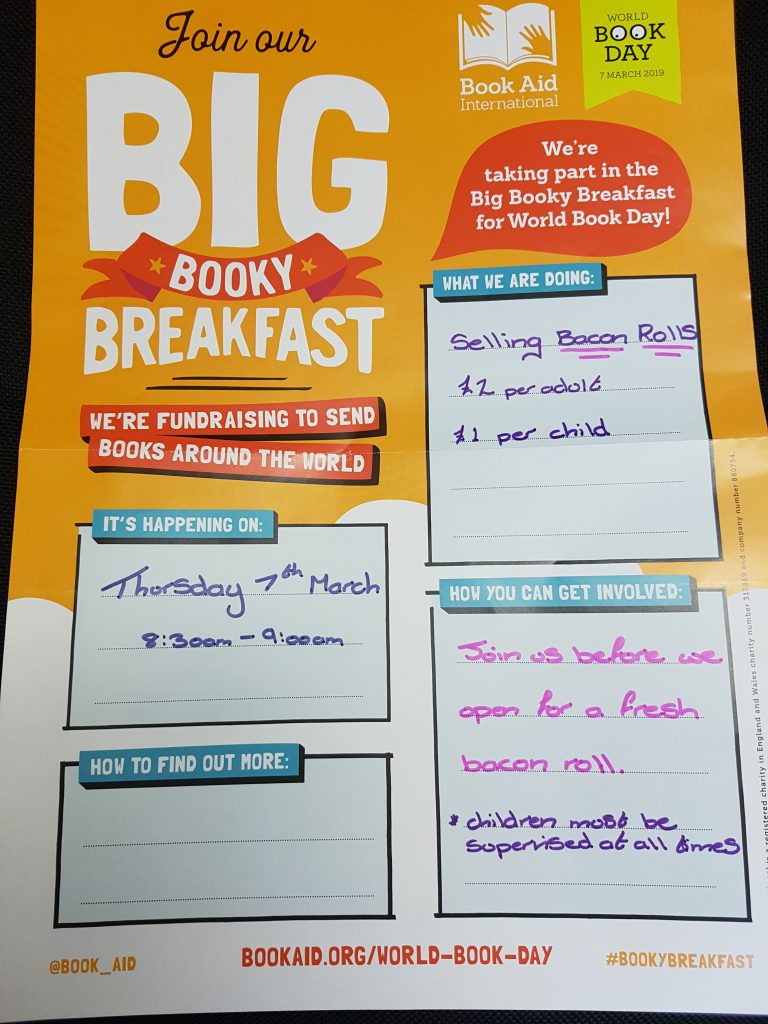 Join our
BIG
BOOKY
BREAKFAST
WE'RE FUNDRAISING TO SEND
BOOKS AROUND THE WORLD
Book Aid
International
WORLD
BOOK
DAY
7 MARCH 2019
We're
taking part in the
Big Booky Breakfast
for World Book Day!
WHAT WE ARE DOING:
Selling Bacon Rolls
£2 per adult
£1 per child
IT'S HAPPENING ON:
Thursday 7th March
8:30am - 9:00am
HOW YOU CAN GET INVOLVED:
Join us before we
open for a fresh
bacon roll.
* children must be
supervised at all times
HOW TO FIND OUT MORE:
is a registered charity in England and Wales charity number 313869 and company number 880754.
@BOOK_AID
BOOKAID.ORG/WORLD-BOOK-DAY
#BOOKYBREAKFAST